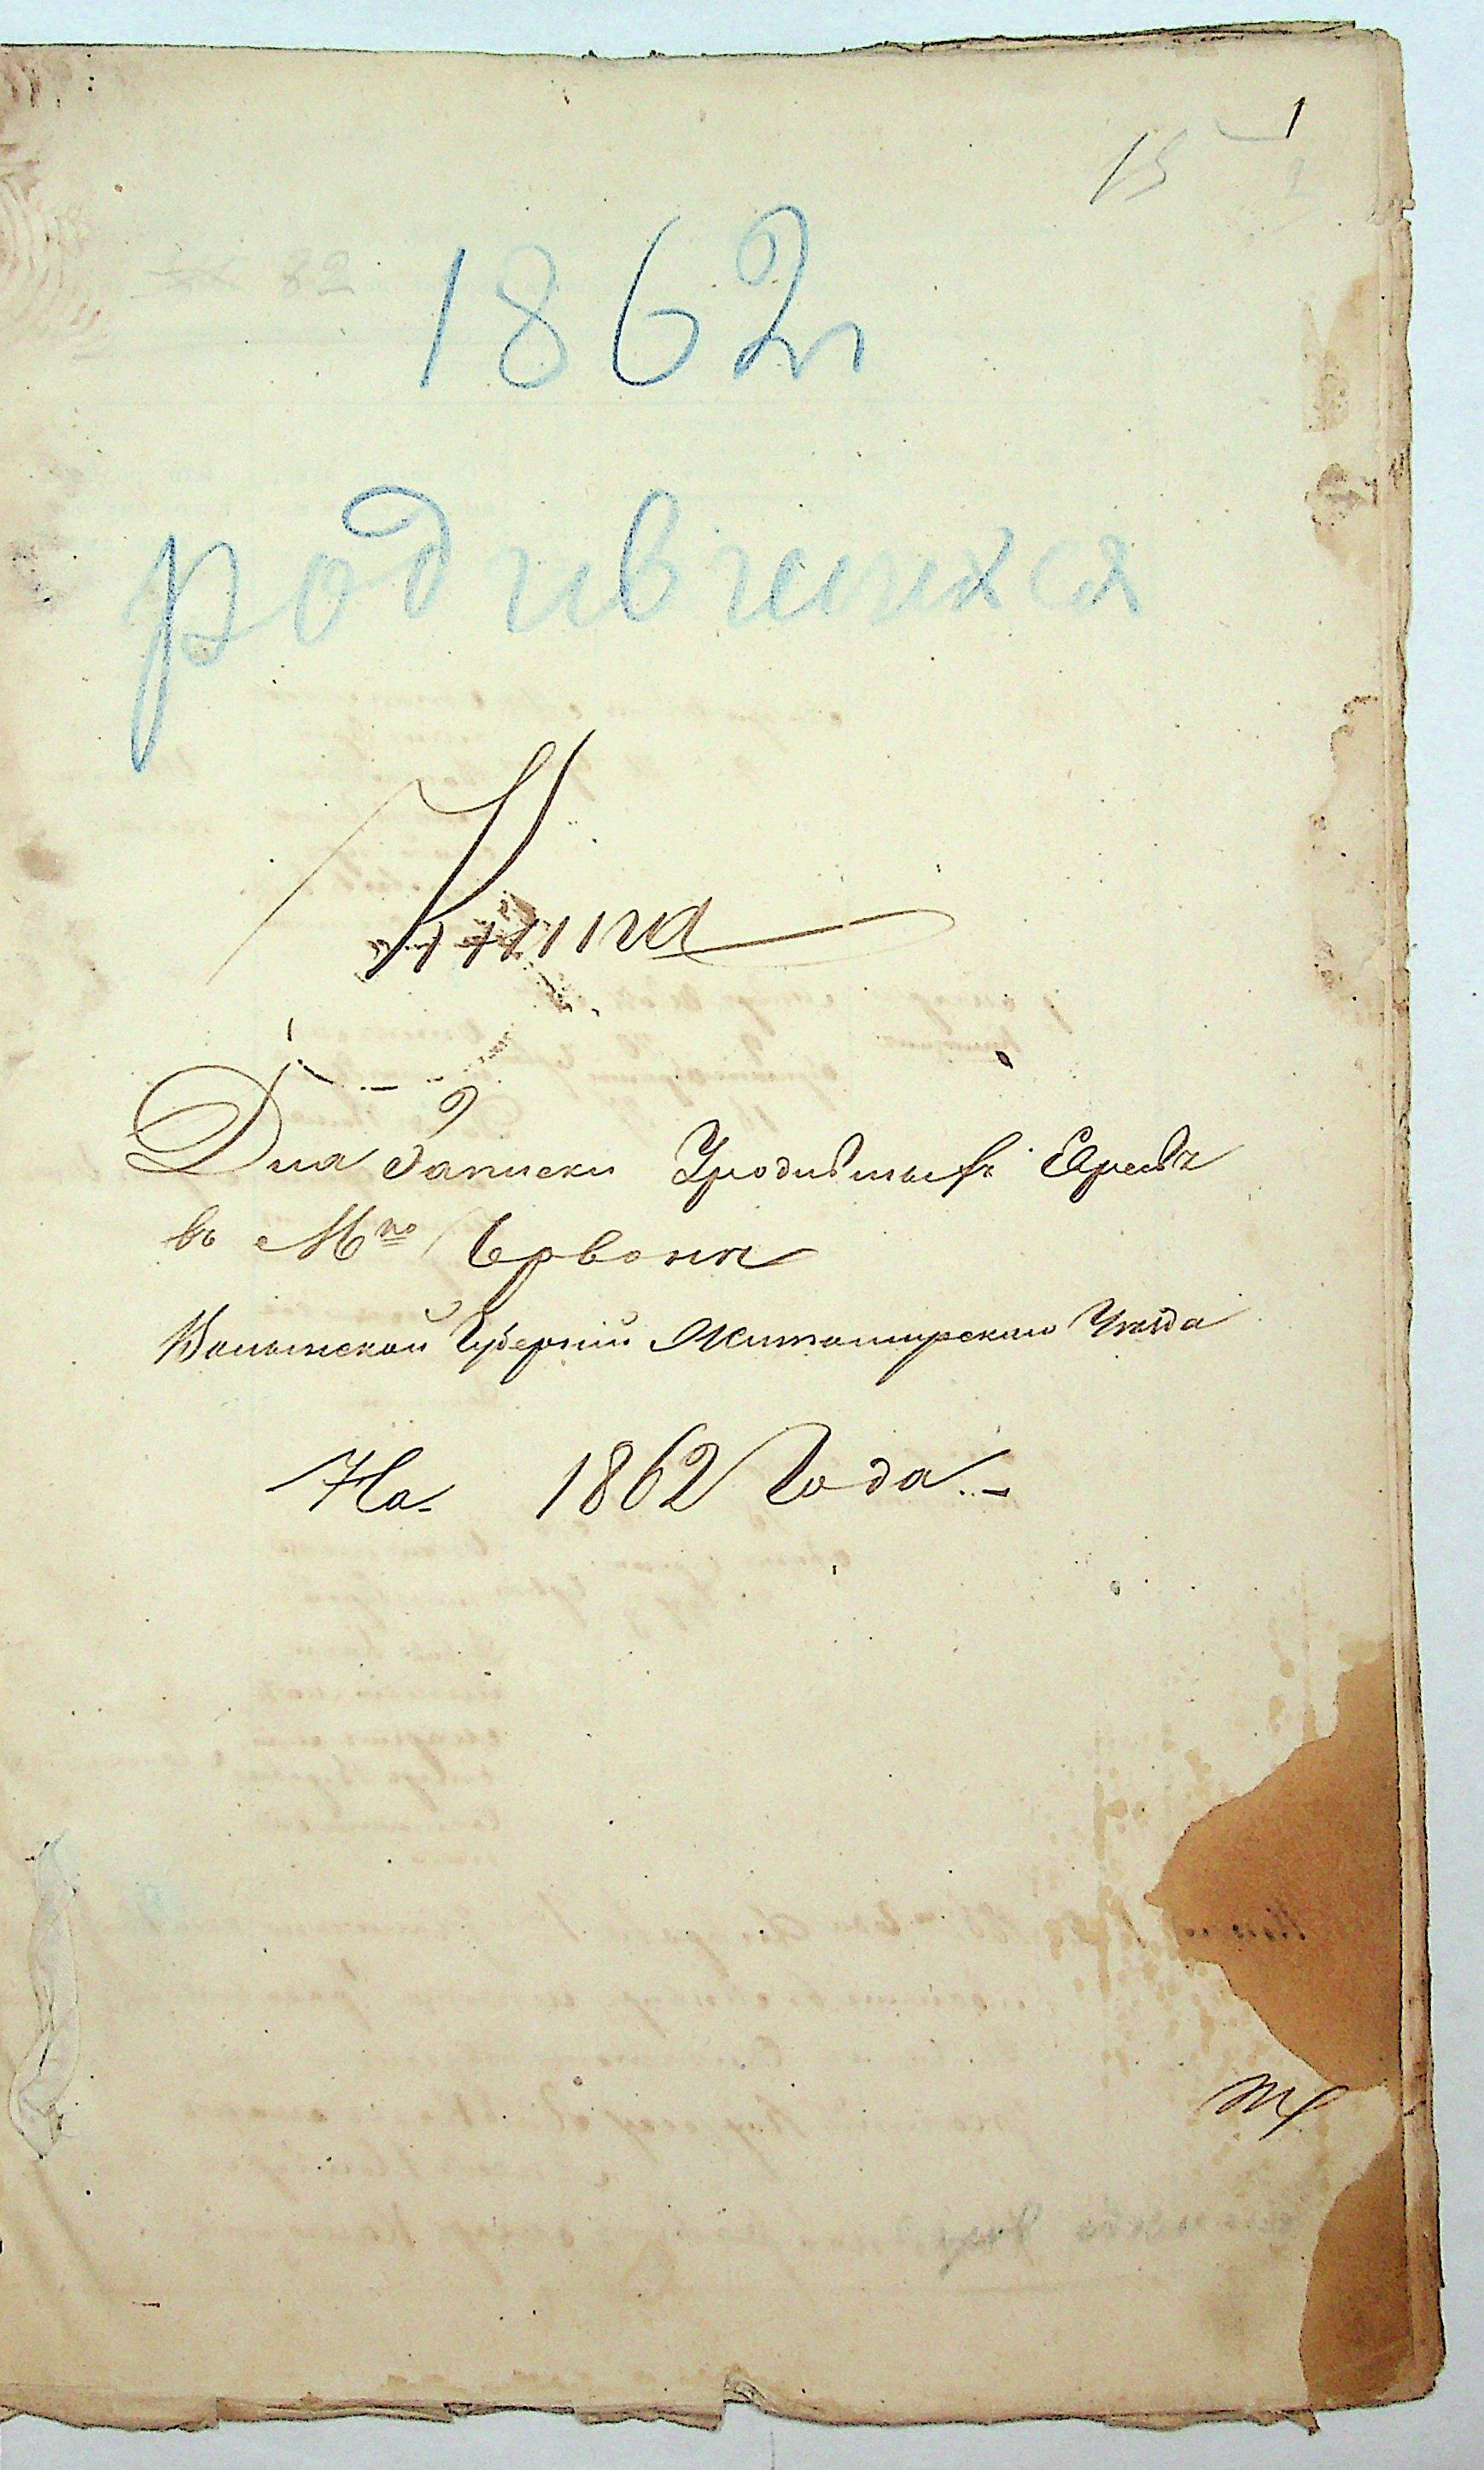 1
15
1862 г
родившихся
Книга
Для Записки Уродившыхъ Евреевъ
въ Мко Червони
Волынской Губерніи Житомирскаго Уезда
На 1862 Года